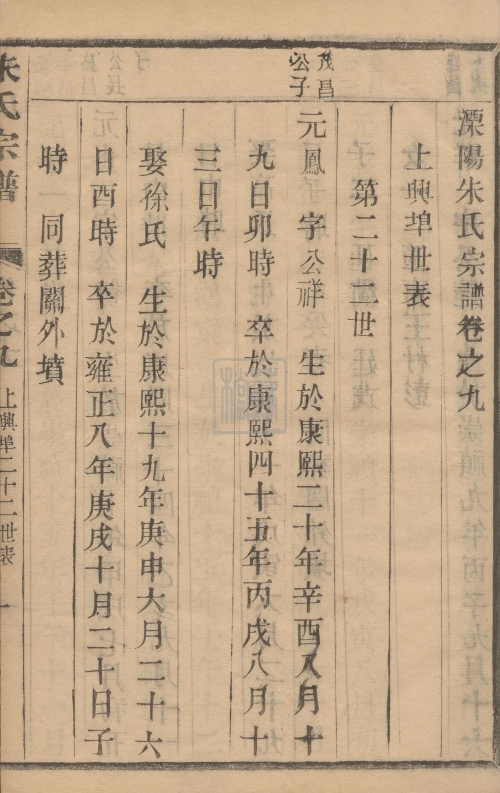 溧陽朱氏宗譜卷之九
上興埠世表
第二十二世
茂昌
公子
元鳳　字公祥　生於康熙二十年辛酉八月十
九日卯時　卒於康熙四十五年丙戌八月十
三日午時
娶徐氏　生於康熙十九年庚申六月二十六
日酉時　卒於雍正八年庚戌十月二十日子
時　同葬關外墳
朱氏宗譜　卷之九　上興埠二十二世表　一